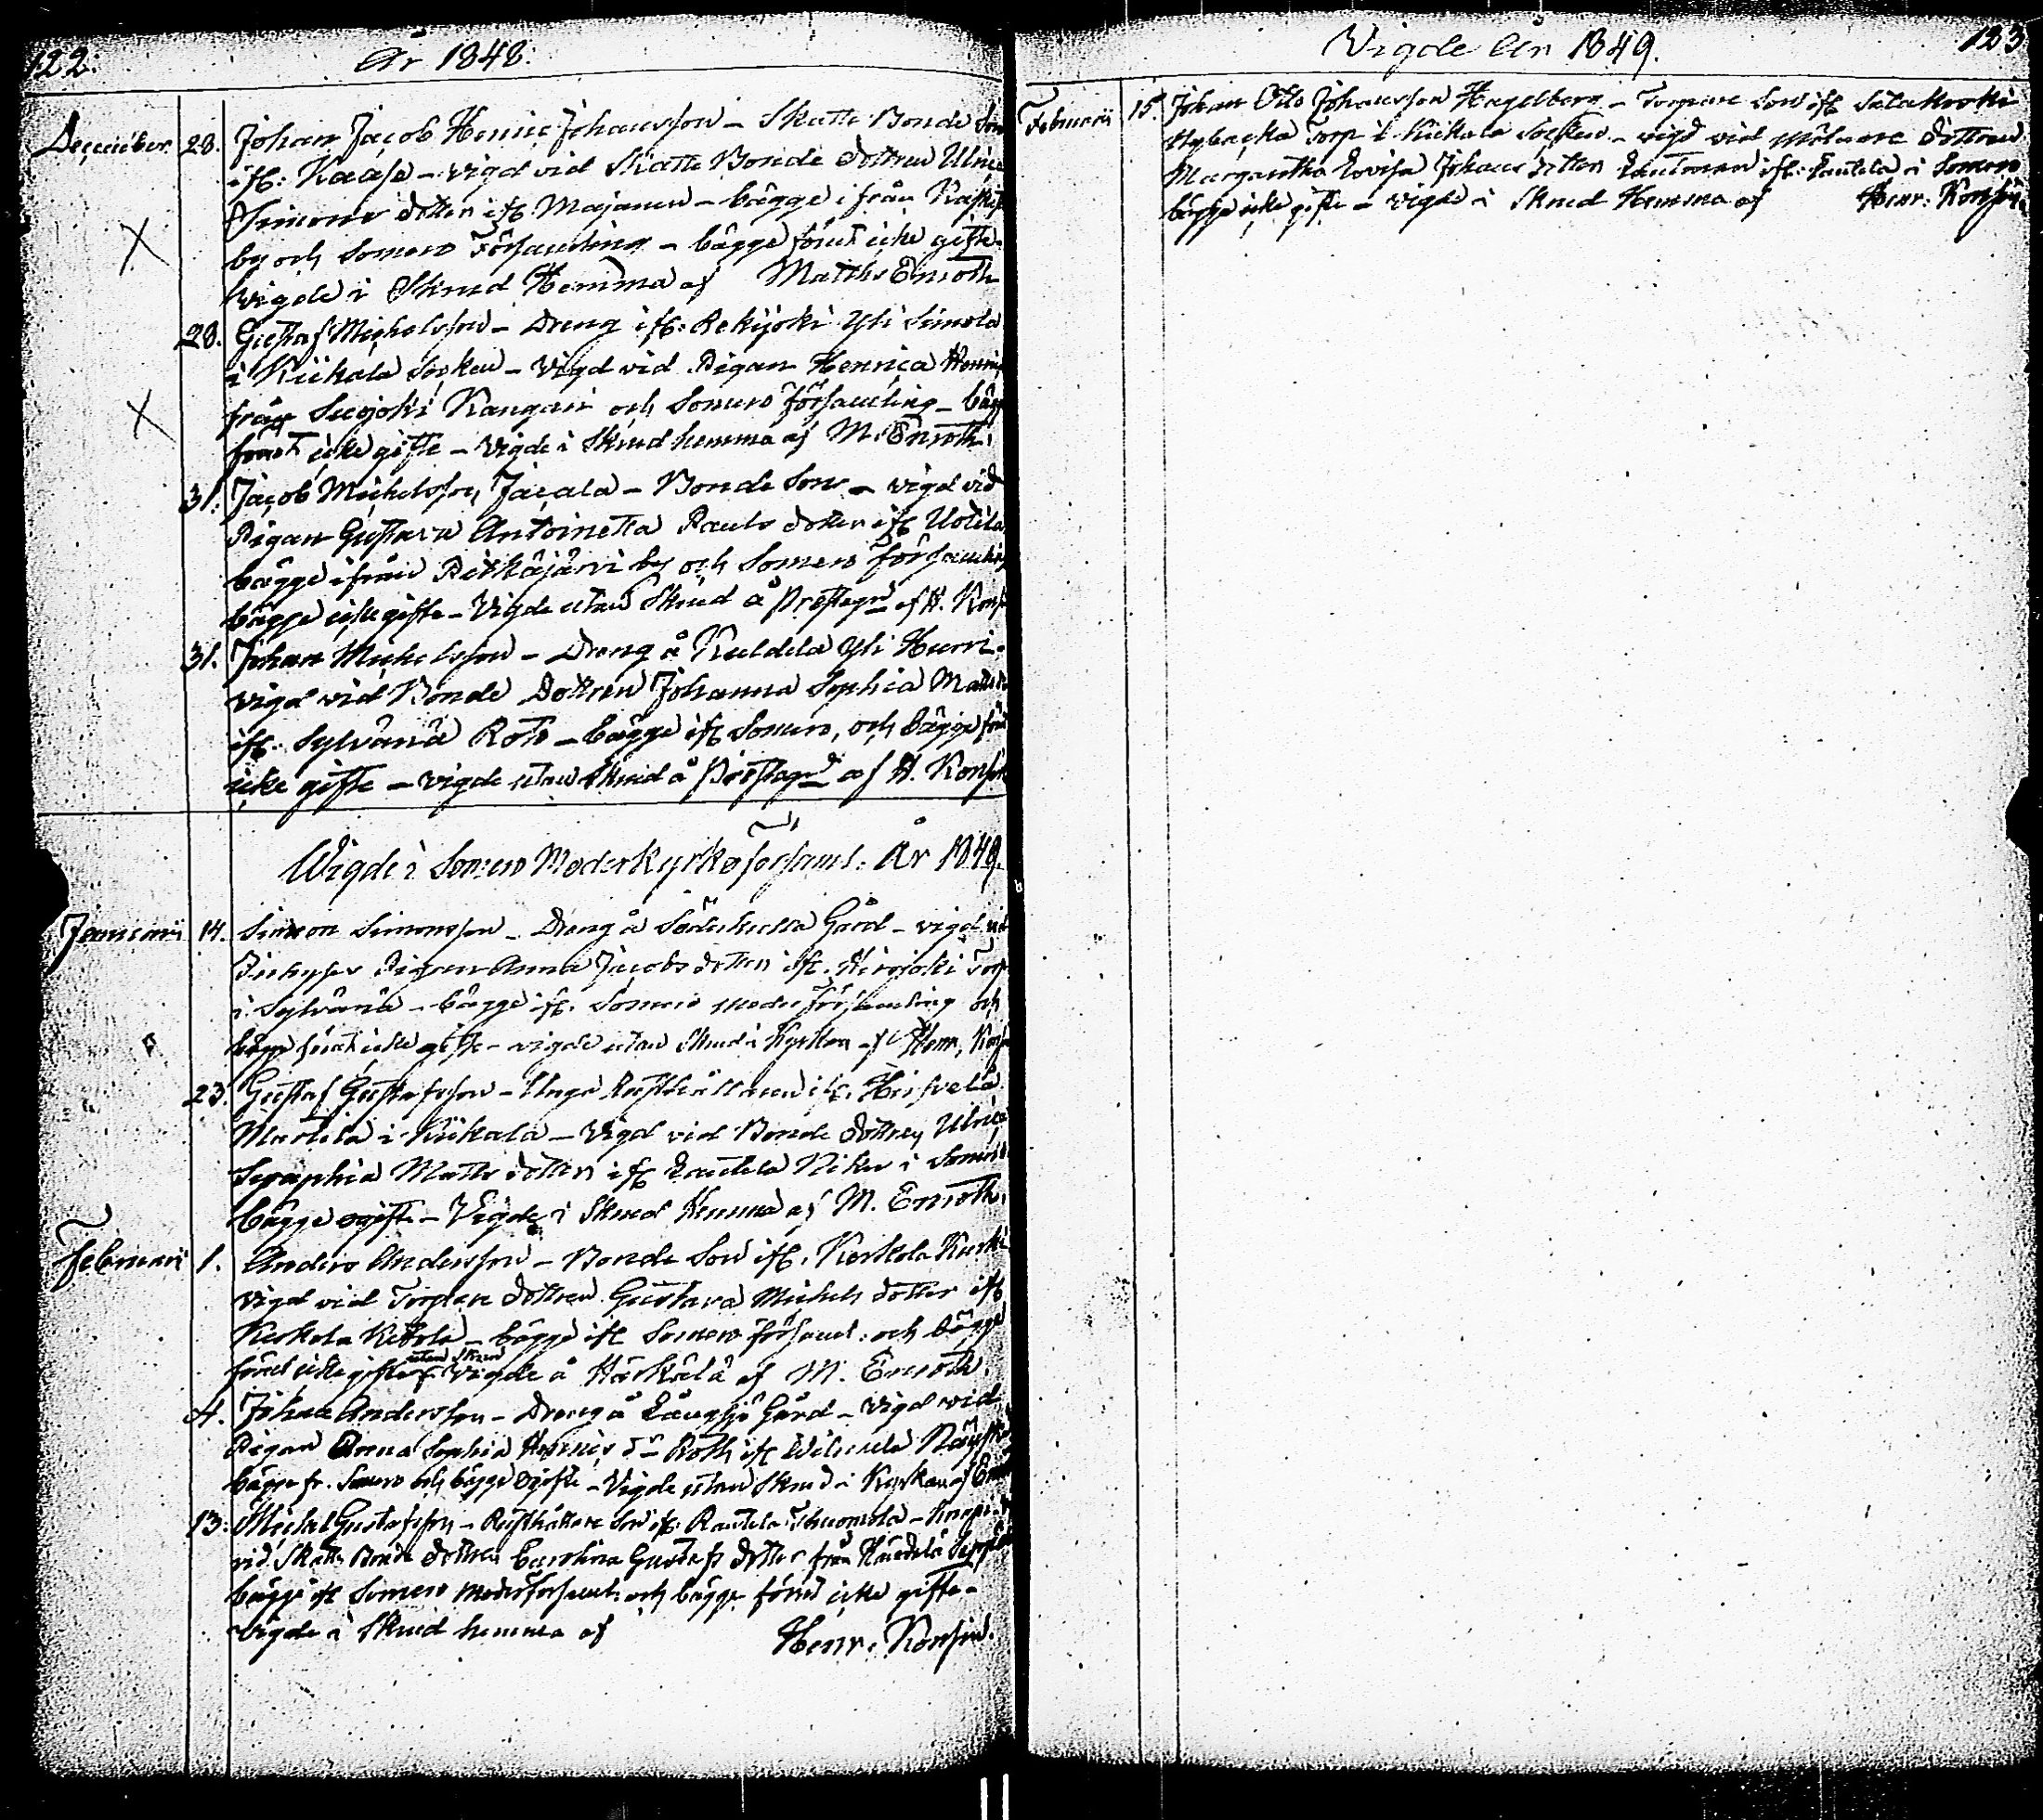 122.
År 1848.
December. 28. Johan Jacob Henric Johansson – Skatte Bonde Son
ifr: Kaasa – vigd vid Skatte Bonde dottren Ulrica
Simons dotter ifr. Majanen – bägge ifrån
by och Somero Församling – bägge förut icke gifte.
Vigde i Skrud Hemma af Matths Enroth
28. Gustaf Michelsson – Dreng ifr: Rekijoki Yli Simola
i Kiikala Socken – Vigd vid Pigan Henrica
från Suojoki Kangari och Somero församling –
förut icke gifte – Vigde i Skrud hemma af M. Enroth.
31. Jacob Michelsson Jacala – Bonde Son – vigd vid
Pigan Gustava Antoinetta Pauls dotter ifr Uotila
bägge ifrån Pitkäjärvi by och Somero församling
bägge icke gifte – Vigde utan Skrud å Prestgd af H.
31. Johan Michelsson – Dreng å Kuldela Yli Hurri.
vigd vid Bonde Dottren Johanna Sophia
ifr. Sylvänä Roto – bägge ifr Somero, och bägge
icke gifte – vigde utan Skrud å Prestgd af H.
Wigde i Somero Moderkyrkoförsaml: År 1849.
Januarii 14. Simon Simonsson – Dreng å Gård – vigd vid
Pigan Anna Jacobs dotter ifr. Torp
i Sylvänä – bägge ifr. Somero moder församling och
bägge förut icke gifte – vigde utan Skrud i Kyrkan af Henr.
23. Gustaf Gustafsson – Unga Rusthållaren ifr.
Martila i Kiikala – Vigd vid Bonde dottren Ulrica
Seraphia Matts dotter ifr Lautela i Somero
bägge ogifte – Vigde i Skrud Hemma af M. Enroth.
Februarii 1. Anders Andersson – Bonde Son ifr. Kerkola
Vigd vid Torpare dottren Gustava Michels dotter ifr
Kerkola – bägge ifr Somero församl: och bägge
förut icke gifte utan Skrud Vigde å Härkälä af M. Enroth.
4. Johan Andersson – Dreng å Långsjö Gård – Vigd vid
Pigan Anna Sophia Henrics dr Roth ifr
bägge fr. Somero och bägge ogifte – Vigde utan Skrud i Kyrkan af
13. Michel Gustafsson – Rusthållare Son ifr. Rautela
vid Skatte Bonde dottren Carolina Gustafs dotter från
bägge ifr Somero moderförsaml: och bägge förut icke gifte –
vigde i Skrud hemma af Henr. Konsin.
Vigde År 1849.
123
Februarii 15. Johan Otto Johansson Hagelberg – Torpare Son ifr
Nybacka Torp i Kiikala Socken – vigd vid dottren
Margaretha Lovisa Johans dotter ifr: Lautela i Somero
bägge icke gifte – vigde i Skrud Hemma af Henr. Konsin.